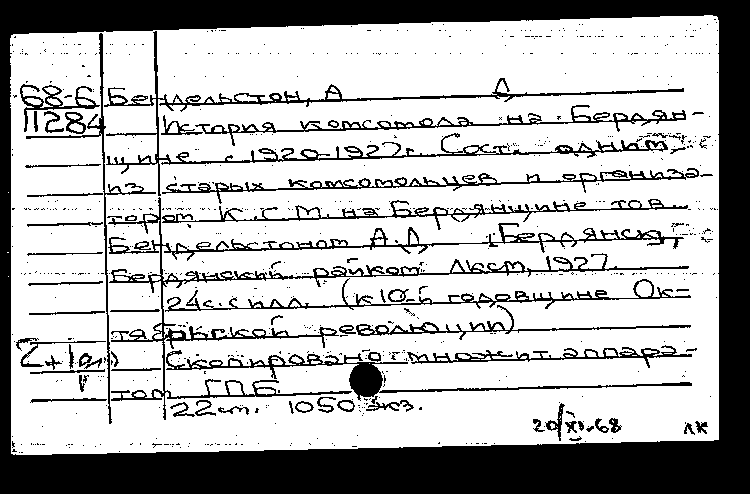 68-6 Бендельстон, А Д
11284 История комсомола на Бердян-
щине с 1920-1927г. Сост. одним
из старых комсомольцев и организа-
тором К.С.М. на Бердянщине тов.
Бендельстоном А.Д. Бердянск,
Бердянский райком ЛКСМ, 1927.
24с. с илл. (к 10-й годовщине Ок-
тябрьской революции)
2+1 Скопировано множит. аппара-
том ГПБ
22см. 1050 экз.
20/XI-68 ЛК